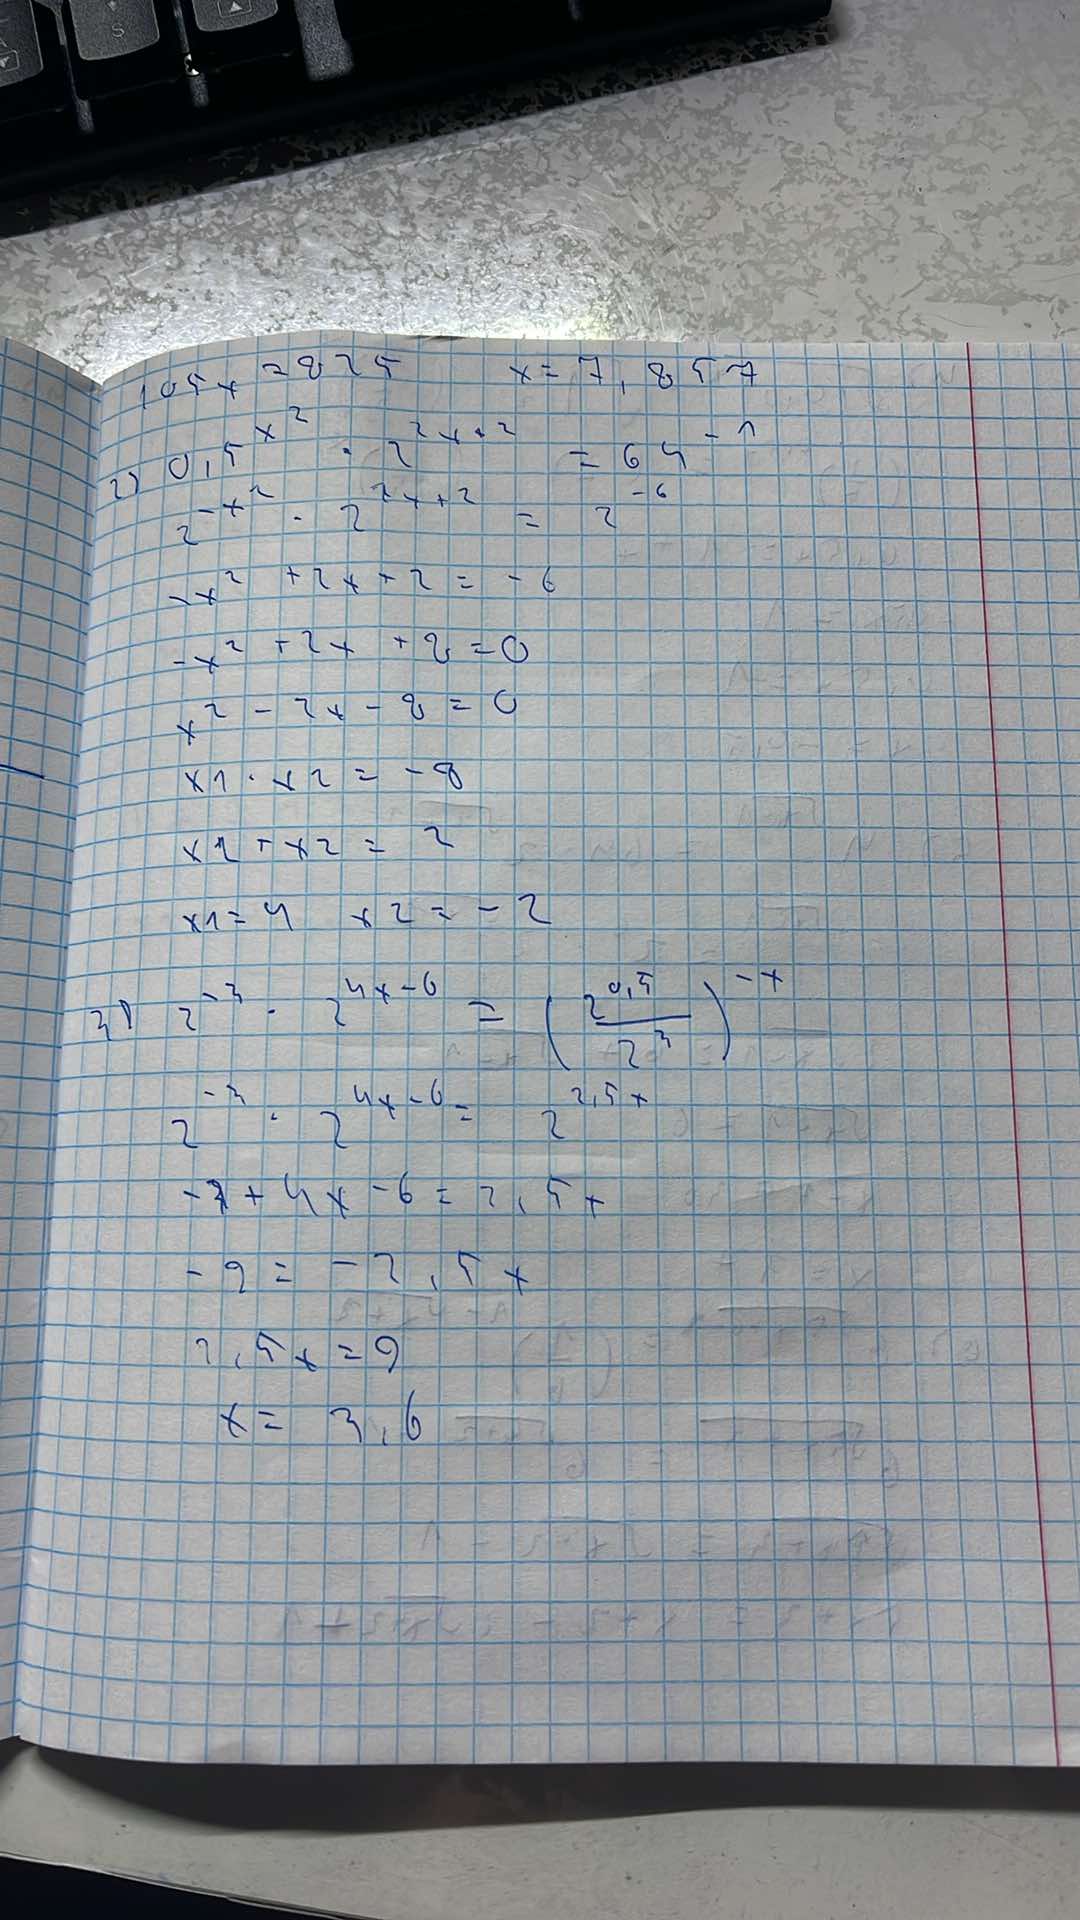 105x = 825 x = 7,857
2) 0,5^{x^2} · 2^{2x+2} = 64^{-1}
2^{-x^2} · 2^{2x+2} = 2^{-6}
-x^2 + 2x + 2 = -6
-x^2 + 2x + 8 = 0
x^2 - 2x - 8 = 0
x1 · x2 = -8
x1 + x2 = 2
x1 = 4 x2 = -2
3) 2^{-3} · 2^{4x-6} = (2^{0,5}/2^3)^{-x}
2^{-3} · 2^{4x-6} = 2^{2,5x}
-3 + 4x - 6 = 2,5x
-9 = -2,5x
2,5x = 9
x = 3,6